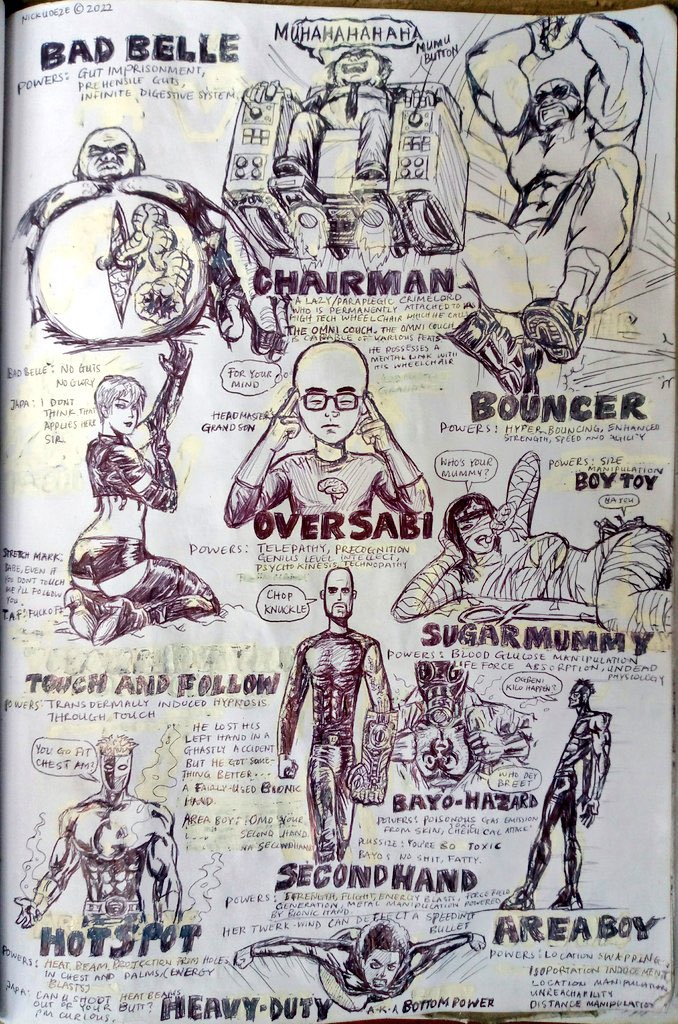 NICKUDEZE © 2022
BAD BELLE
POWERS: GUT IMPRISONMENT,
PREHENSILE GUTS,
INFINITE DIGESTIVE SYSTEM,
MUHAHAHAHAHA
MUMU
BUTTON
CHAIRMAN
A LAZY/PARAPLEGIC CRIMELORD
WHO IS PERMANENTLY ATTACHED TO HIS
HIGH TECH WHEELCHAIR WHICH HE CALLS
THE OMNI COUCH. THE OMNI COUCH
IS CAPABLE OF VARIOUS FEATS
HE POSSESSES A
MENTAL LINK WITH
HIS WHEELCHAIR
BOUNCER
POWERS: HYPER BOUNCING, ENHANCED
STRENGTH, SPEED AND AGILITY
BAD BELLE: NO GUTS
NO GLORY
JAPA: I DONT
THINK THAT
APPLIES HERE
SIR.
FOR YOUR
MIND
HEADMASTER
GRANDSON
OVERSABI
POWERS: TELEPATHY, PRECOGNITION
GENIUS LEVEL INTELLECT,
PSYCHOKINESIS, TECHNOPATHY
POWERS: SIZE
MANIPULATION
BOY TOY
WHO'S YOUR
MUMMY?
NA YOU
SUGAR MUMMY
POWERS: BLOOD GLUCOSE MANIPULATION
LIFE FORCE ABSORPTION, UNDEAD
PHYSIOLOGY
STRETCH MARK:
BABE, EVEN IF
YOU DON'T TOUCH
ME I'LL FOLLOW
YOU.
T.A.F: FUCK OFF
TOUCH AND FOLLOW
POWERS: TRANSDERMALLY INDUCED HYPNOSIS
THROUGH TOUCH
CHOP
KNUCKLE
HE LOST HIS
LEFT HAND IN A
GHASTLY ACCIDENT
BUT HE GOT SOME-
THING BETTER...
A FAIRLY-USED BIONIC
HAND.
AREA BOY: OMO YOUR
SECOND HAND
NA SECONDHAND
SECONDHAND
POWERS: STRENGTH, FLIGHT, ENERGY BLASTS, FORCE FIELD
GENERATION, METAL MANIPULATION POWERED
BY BIONIC HAND.
OGBENI
KILO HAPPEN?
WHO DEY
BREET
BAYO-HAZARD
POWERS: POISONOUS GAS EMISSION
FROM SKIN, TOXIC CHEMICAL ATTACK
PLUS SIZE: YOU'RE SO TOXIC
BAYO: NO SHIT, FATTY.
AREA BOY
POWERS: LOCATION SWAPPING,
ISOPORTATION INDUCEMENT
LOCATION MANIPULATION
UNREACHABILITY
DISTANCE MANIPULATION
YOU GO FIT
CHEST AM?
HOTSPOT
POWERS: HEAT, BEAM, PROJECTION FROM HOLES
IN CHEST AND PALMS, (ENERGY
BLASTS)
JAPA: CAN U SHOOT HEAT BEAMS
OUT OF YOUR BUTT?
I'M CURIOUS.
HER TWERK-WIND CAN DEFLECT A SPEEDING
BULLET
HEAVY-DUTY
A.K.A BOTTOMPOWER